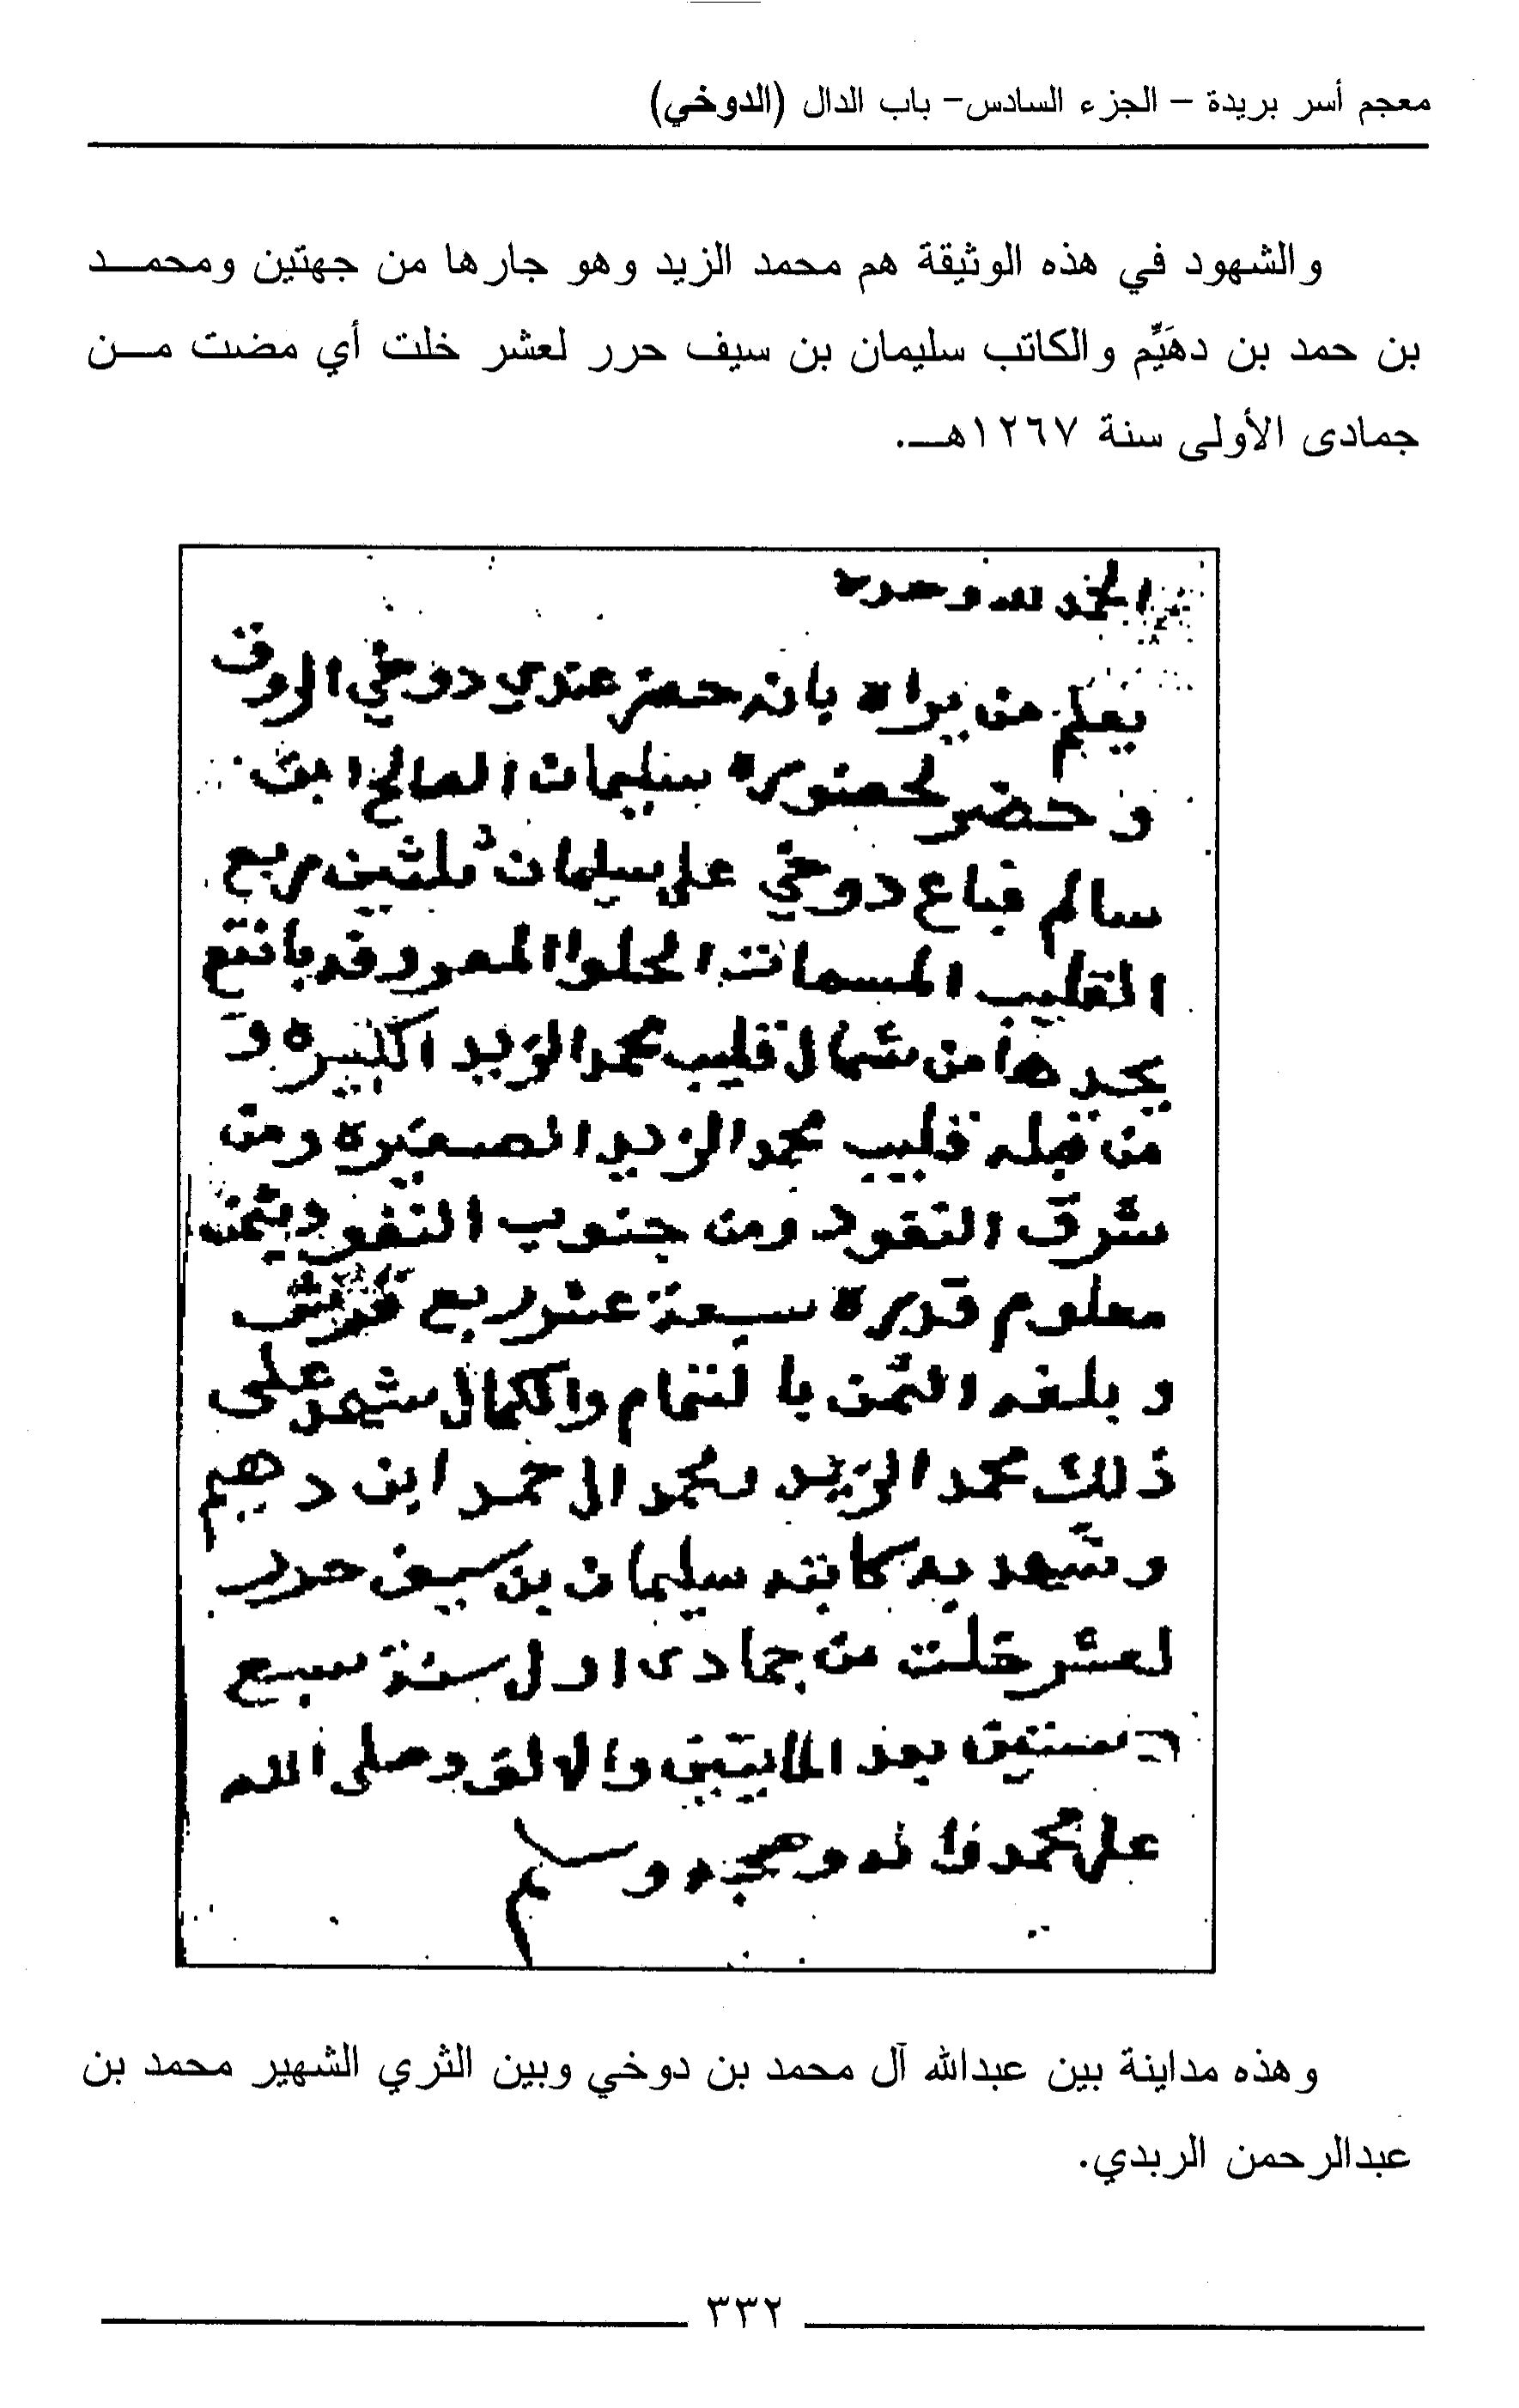 معجم أسر بريدة – الجزء السادس– باب الدال (الدوخي)
والشهود في هذه الوثيقة هم محمد الزيد وهو جارها من جهتين ومحمـــد
بن حمد بن دهَيِّم والكاتب سليمان بن سيف حرر لعشر خلت أي مضت مـــن
جمادى الأولى سنة ١٢٦٧هـــ.
الحمد لله وحده
يعلم من يراه بانه حضر عندي دوخي
وحضر لحضوره سليمان الصالح ابن
سالم فباع دوخي على سليمان ثلثين ربع
القليب المسمات الحلوا المعروفه
يحدها من شمال قليب محمد الزيد اكبيره و
من قبله قليب محمد الزيد الصغيره ومن
شرق النفود ومن جنوب النفود بثمن
معلوم قدره سبعة عشر ربع قرش
وبلغه الثمن بالتمام والكمال شهد على
ذلك محمد الزيد ومحمد ال حمد ابن دهيم
وشهد به كاتبه سليمان بن سيف حرر
لعشر خلت من جمادى اول سنة سبع
وستين بعد المايتين والالف وصلى الله
على محمد واله وصحبه وسلم
وهذه مداينة بين عبدالله آل محمد بن دوخي وبين الثري الشهير محمد بن
عبدالرحمن الربدي.
٣٣٢